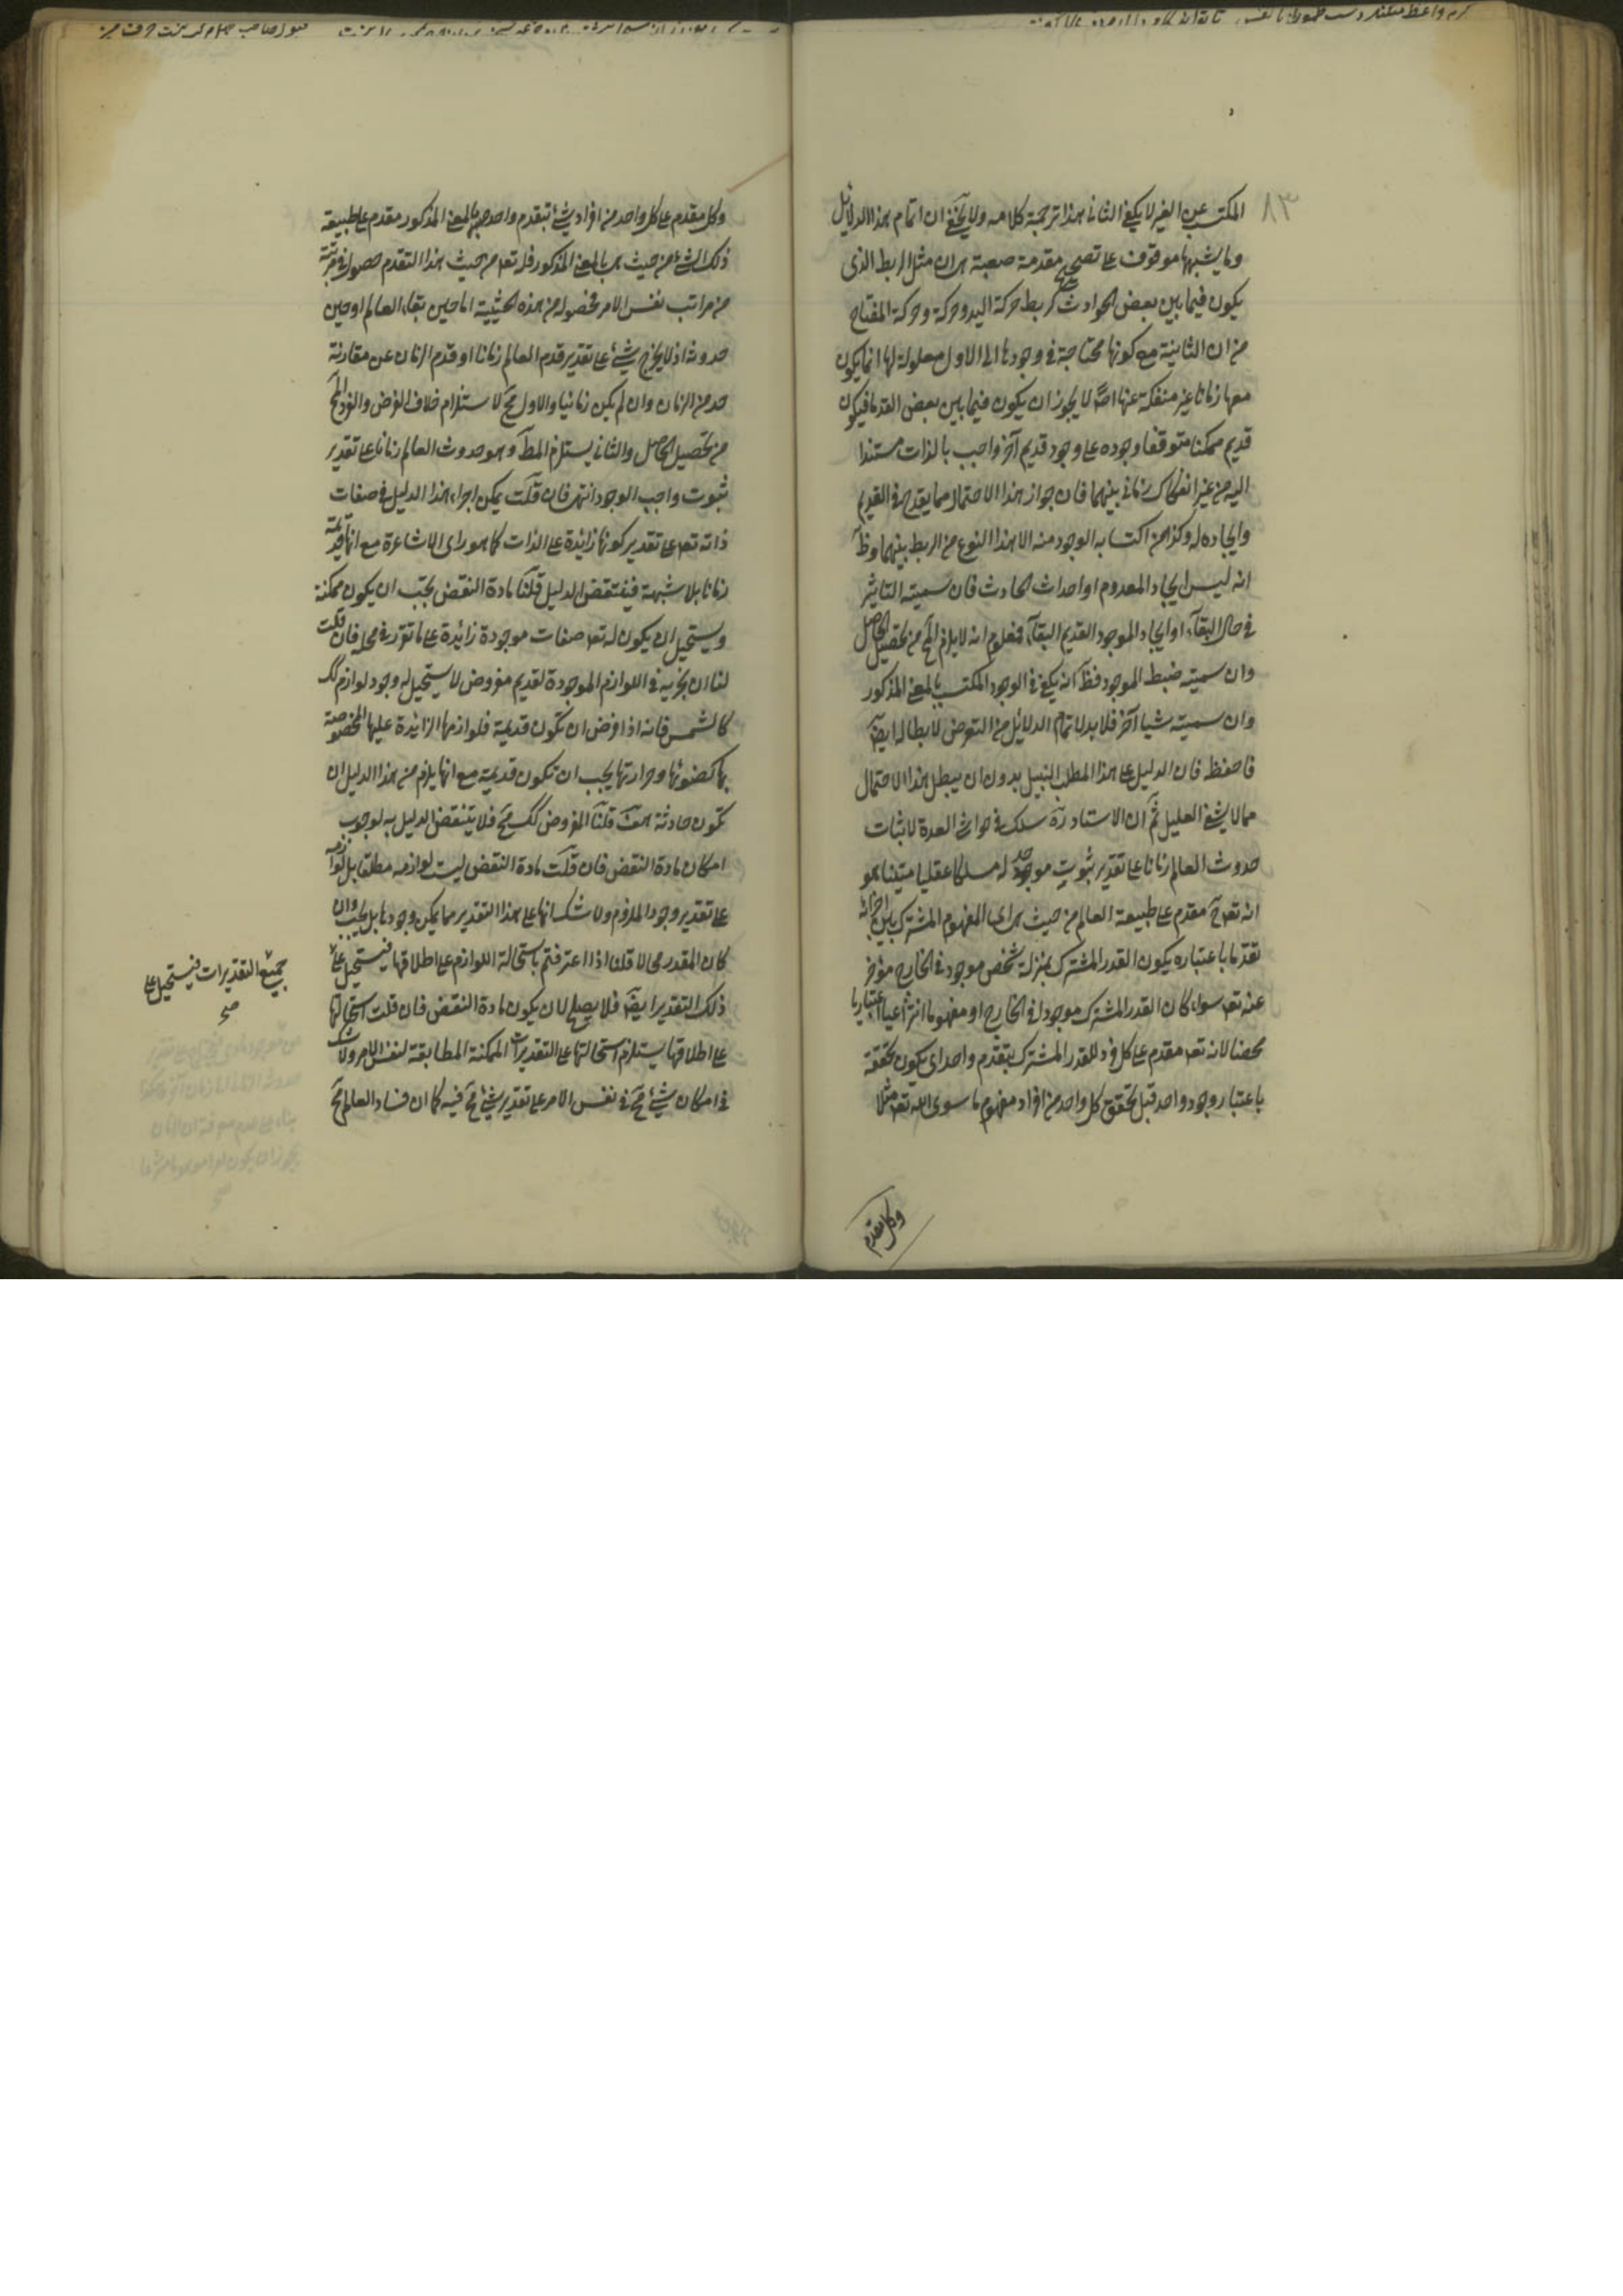 ٨٣
المكتسب عن الغير لا يكفي الثاني هذا ترجمة كلامه ولا يخفى ان اتمام هذا الدلايل
وما يشبهها موقوف على تصحيح مقدمة صعبة هي ان مثل الربط الذى
يكون فيما بين بعض الحوادث كربط حركة اليد وحركة المفتاح
من ان الثانية مع كونها محتاجة في وجودها الى الاول معلولة لها انما يكون
معها زمانا غير منفكة عنها اصلا لا يجوز ان يكون فيما بين بعض القدما فيكون
قديم ممكنا متوقفا وجوده على وجود قديم آخر واجب بالذات مستندا
اليه من غير انفكاك زمانى بينهما فان جواز هذا الاحتمال مما يقدح في القديم
وايجاده له وكذا من اكتسابه الوجود منه الا هذا النوع من الربط بينهما وظ
انه ليس ايجاد المعدوم او احداث الحادث فان سميته التاثير
في حال البقآء او ايجاد الموجود القديم البقآء فمعلوم انه لا يلزم المح من تحصيل الحاصل
وان سميته ضبط الموجود فظ انه يكفي في الوجود المكتسب بالمعنى المذكور
وان سميته شيا آخر فلا بد لاتمام الدلائل من التعرض لابطاله ايضا
فاحفظ فان الدليل على هذا المطلب النبيل بدون ان يبطل هذا الاحتمال
مما لا يشفى العليل ثم ان الاستاد ره سلك في حواشى العدة لاثبات
حدوث العالم زمانا على تقدير ثبوت موجد له مسلكا عقليا متينا هو
انه تعه مقدم على طبيعة العالم من حيث هي اى المفهوم المشترك بين اجزائه
تقدما باعتباره يكون القدر المشترك بمنزلة شخص موجود في الخارج مؤخر
عنه تعه سواء كان القدر المشترك موجودا في الخارج او مفهوما انتزاعيا اعتباريا
محضا لانه تعه مقدم على كل فرد للقدر المشترك بتقدم واحد اى يكون تحققه
باعتبار وجود واحد قبل تحقق كل واحد من افراد مفهوم ما سوى الله تعه مثلا
وكل مقدم
وكل مقدم على كل واحد من افراد شئ بتقدم واحد بالمعنى المذكور مقدم على طبيعة
ذلك الشئ من حيث هي بالمعنى المذكور فله تعه من حيث هذا التقدم حصول في مرتبة
من مراتب نفس الامر فحصوله من هذه الحيثية اما حين بقاء العالم او حين
حدوثه اذ لا يخرج شئ على تقدير قدم العالم زمانا او قدم الزمان عن مقارنة
حد من الزمان وان لم يكن زمانيا والاول مح لاستلزام خلاف الفرض والفرد المح
من تحصيل الحاصل والثانى يستلزم المط وهو حدوث العالم زمانا على تقدير
ثبوت واجب الوجود انتهى فان قلت يمكن اجراء هذا الدليل في صفات
ذاته تعه على تقدير كونها زائدة على الذات كما هو راى الاشاعرة مع انها قديمة
زمانا بلا شبهة فينتقض الدليل قلنا مادة النقض يجب ان يكون ممكنة
ويستحيل ان يكون له تعه صفات موجودة زائدة على ما تقرر في محله فان قلت
لنا ان نجريه في اللوازم الموجودة لقديم مفروض لا يستحيل له وجود لوازم كك
كالشمس فانه اذا فرض ان تكون قديمة فلوازمها الزائدة عليها المخصوصة
بها كضوئها وحرارتها يجب ان تكون قديمة مع انها يلزم من هذا الدليل ان
تكون حادثة هف قلنا المفروض كك مح فلا ينتقض الدليل به لوجوب
امكان مادة النقض فان قلت مادة النقض ليست لوازمه مطلقا بل لوازمه
على تقدير وجود الملزوم ولا شك انها على هذا التقدير مما يمكن وجودها بل يجب وان
كان المقدر محالا قلنا اذا اعترفتم باستحالة اللوازم على اطلاقها فيستحيل على
جميع التقديرات فيستحيل على
صح
ذلك التقدير ايضا فلا يصلح لان يكون مادة النقض فان قلت استحالتها
على اطلاقها يستلزم استحالتها على التقديرات الممكنة المطابقة لنفس الامر ولا شك
في امكان شئ مح في نفس الامر على تقدير شئ مح فيه كما ان فساد العالم مح